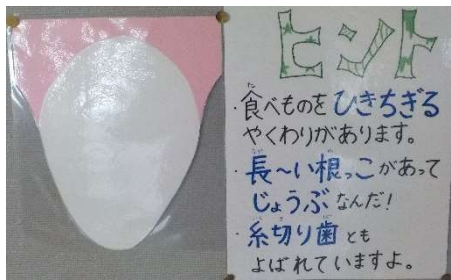 ヒント
・食べものをひきちぎる
やくわりがあります。
・長〜い根っこがあって
じょうぶなんだ！
・糸切り歯とも
よばれていますよ。